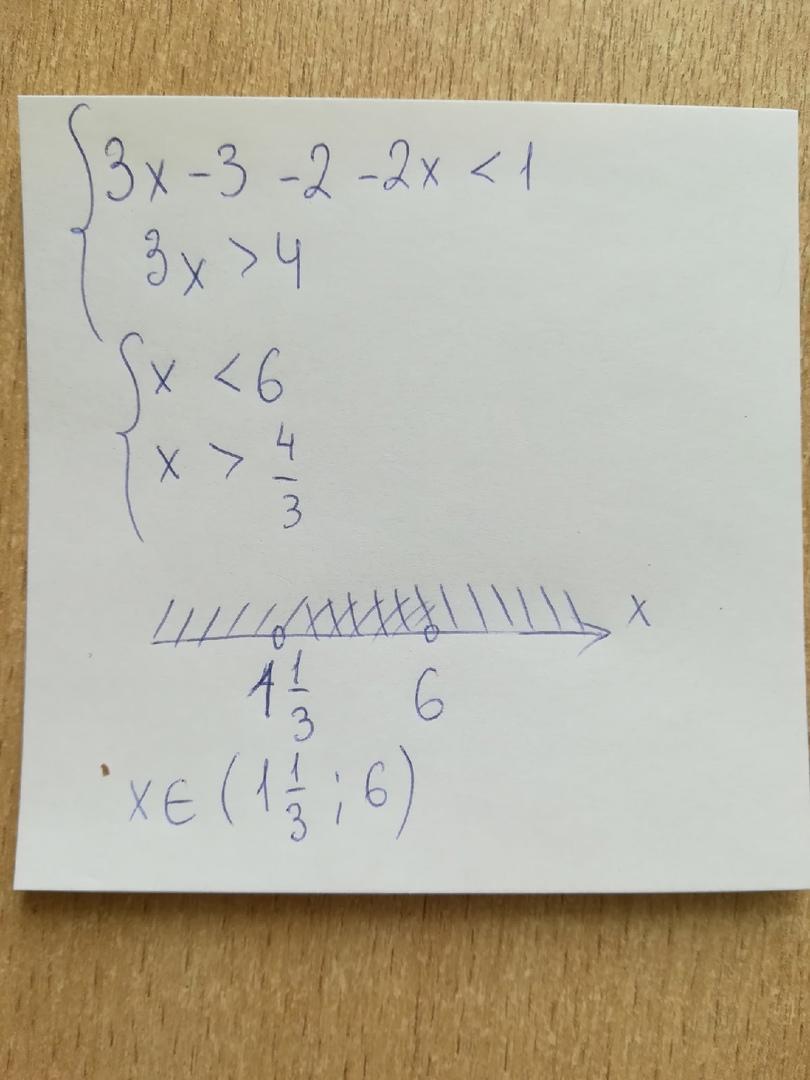 { 3x - 3 - 2 - 2x < 1
3x > 4
{ x < 6
x > 4/3
x
1 1/3 6
x ∈ (1 1/3 ; 6)